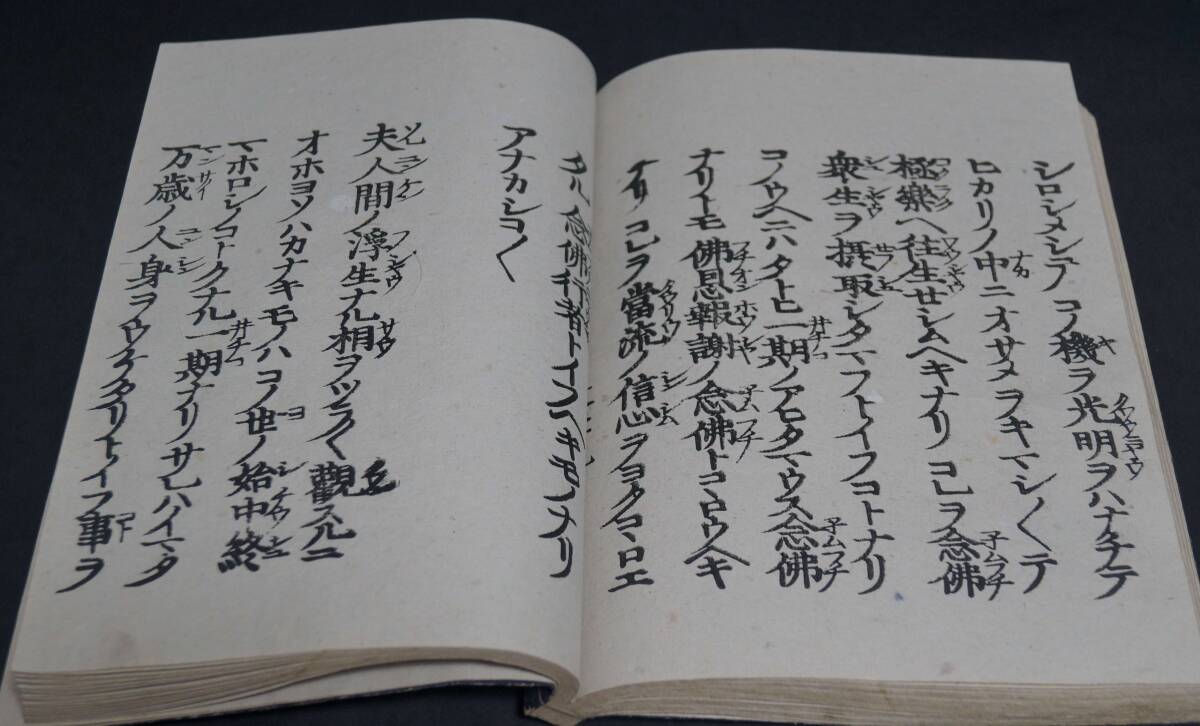 シロシメシテコノ機ヲ光明ヲハナチテ
ヒカリノ中ニオサメヲキマシ〳〵テ
極樂ヘ往生セシムヘキナリコレヲ念佛
衆生ヲ摂取シタマフトイフコトナリ
コノウヘニハタトヒ一期ノアヒタマウス念佛
ナリトモ佛恩報謝ノ念佛トコヽロウヘキ
ナリコレヲ當流ノ信心ヲヨクコヽロエ
タル念佛行者トイフヘキモノナリ
アナカシコ〳〵
夫人間ノ浮生ナル相ヲツラ〳〵觀スルニ
オホヨソハカナキモノハコノ世ノ始中終
マホロシノコトクナル一期ナリサレハイマタ
万歳ノ人身ヲウケタリトイフ事ヲ